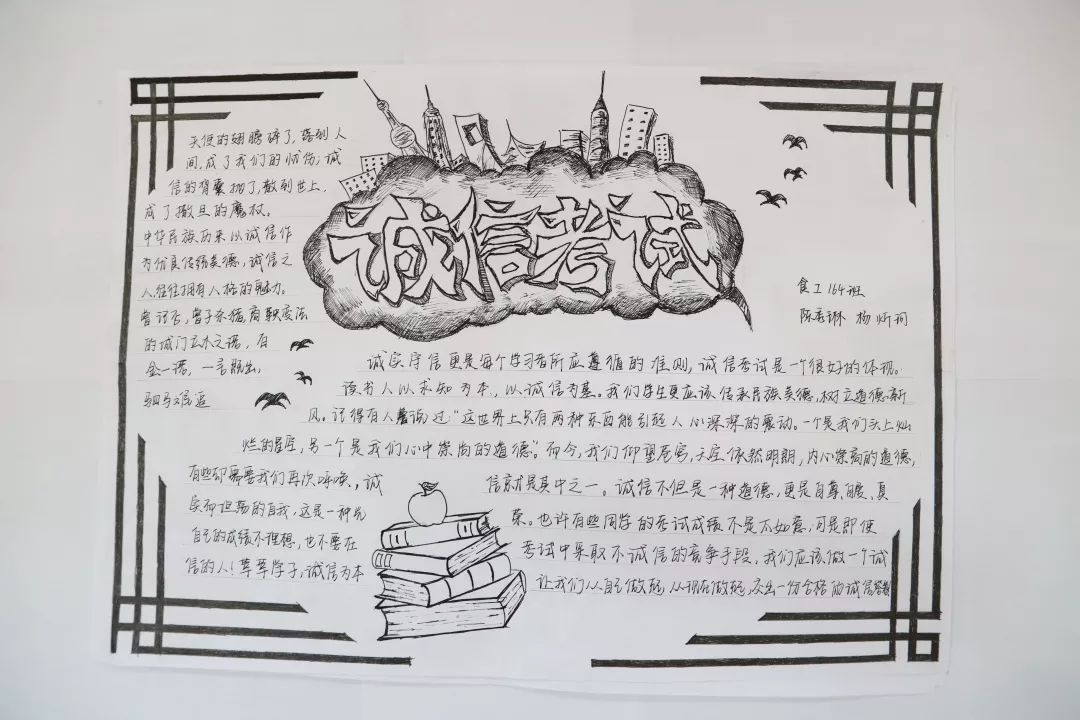 诚信考试
天使的翅膀碎了，落到人
间，成了我们的忧伤；诚
信的背囊抛了，散到世上，
成了撒旦的魔杖。
中华民族历来以诚信作
为优良传统美德，诚信之
人往往拥有人格的魅力。
曾记否，曾子杀猪，商鞅变法
的城门立木之诺，有
金一诺，一言既出，
驷马难追
食工164班
陈 琳 杨炘词
诚实守信更是每个学习者所应遵循的准则，诚信考试是一个很好的体现。
读书人以求知为本，以诚信为基。我们学生更应该传承民族美德，树立道德新
风。记得有人曾说过：“这世界上只有两种东西能引起人心深深的震动。一个是我们头上灿
烂的星空，另一个是我们心中崇尚的道德”。而今，我们仰望苍穹，天空依然明朗，内心崇高的道德，
有些却需要我们再次呼唤，诚 信就是其中之一。诚信不但是一种道德，更是自尊、自爱、真
实而坦荡的自我，这是一种光 荣。也许有些同学的考试成绩不是不如意，可是即使
自己的成绩不理想，也不要在 考试中采取不诚信的竞争手段，我们应该做一个诚
信的人！莘莘学子，诚信为本 让我们从自己做起，从现在做起，交出一份合格的诚信答卷